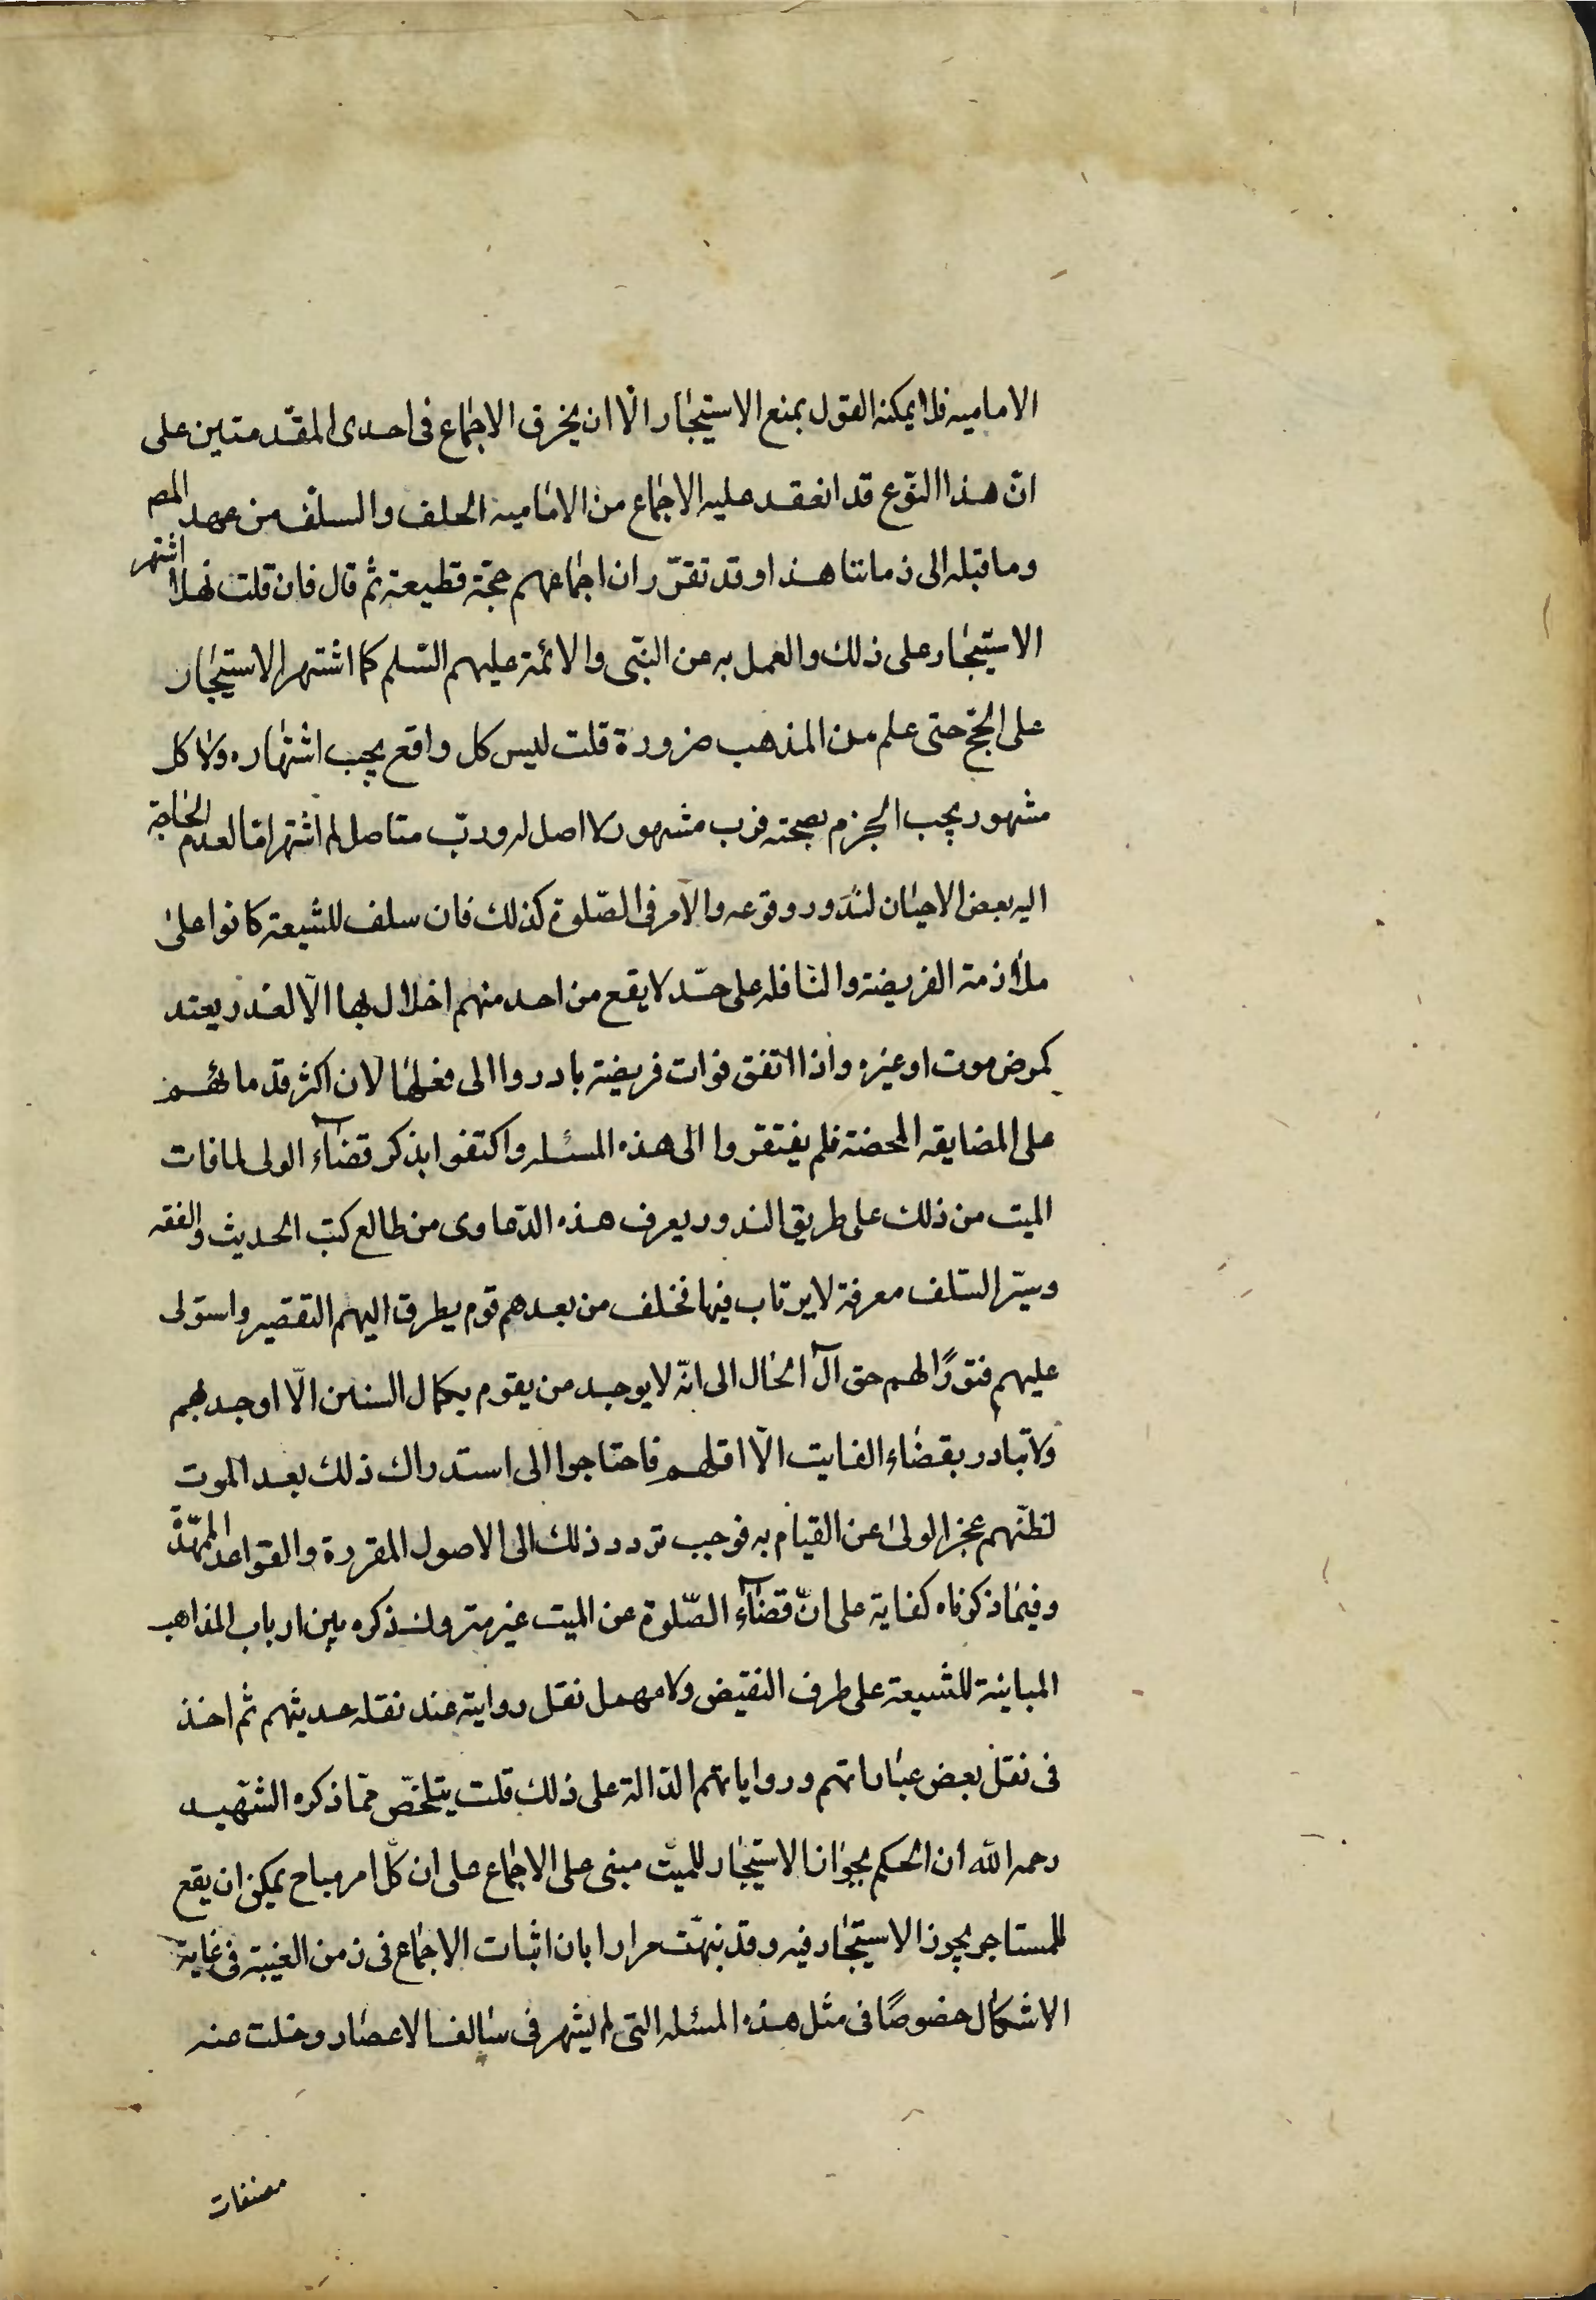 الاماميه فلا يمكنه القول بمنع الاستيجار الّا ان يخرق الاجماع فى احدى المقدمتين على
انّ هذا النّوع قد انعقد عليه الاجماع من الاماميه الخلف والسلف من عهد المصـ
وما قبله الى زماننا هذا وقد تقرّر ان اجماعهم حجّة قطيعة ثم قال فان قلت فهلا اشتهر
الاستيجار على ذلك والعمل به عن النّبى والائمة عليهم السّلم كما اشتهر الاستيجار
على الحجّ حتى علم من المذهب ضرورة قلت ليس كل واقع يجب اشتهاره ولا كل
مشهور يجب الجزم بصحته فرب مشهور لا اصل له وربّ متاصل لم اشتهر امّا لعدم الحاجة
اليه بعض الاحيان لندور وقوعه والامر فى الصّلوة كذلك فان سلف للشيعة كانوا على
ملازمة الفريضة والنّافله على حدّ لا يقع من احد منهم اخلال بها الّا لعذر يعتد
كمرض موت او غيره واذا اتفق فوات فريضة بادروا الى فعلها لان اكثر قدمائهم
على المضايقه المحضة فلم يفتقروا الى هذه المسئله واكتفوا بذكر قضاء الولى لما فات
الميت من ذلك على طريق الندور يعرف هذه الدّعاوى من طالع كتب الحديث والفقه
وسيّر السّلف معرفة لا يرتاب فيها فخلف من بعدهم قوم يطرق اليهم التقصير واستولى
عليهم فتورًا لهم حتى آل الحال الى انّه لا يوجد من يقوم بكمال السنن الّا اوجد بهم
ولا تبادر بقضاء الفايت الّا اقلهم فاحتاجوا الى استدراك ذلك بعد الموت
لظنّهم عجز الولى عن القيام به فوجب تردد ذلك الى الاصول المقررة والقواعد الممهّدة
وفيما ذكرناه كفاية على انّ قضاء الصّلوة عن الميت غير متروك ذكره بين ارباب المذاهب
المباينة للشيعة على طرف النقيض ولا مهمل نقل روايته عند نقله حديثهم ثم اخذ
فى نقل بعض عباراتهم ورواياتهم الدّالة على ذلك قلت يتلخّص ممّا ذكره الشّهيد
رحمه الله ان الحكم بجواز الاستيجار للميّت مبنى على الاجماع على ان كلّ امر مباح يمكن ان يقع
للمستاجر يجوز الاستيجار فيه وقد نبهّت مرارا بان اثبات الاجماع فى زمن الغيبة فى غاية
الاشكال خصوصًا فى مثل هذه المسئله التى لم يشهر فى سالف الاعصار وخلت عنه
مصنفات